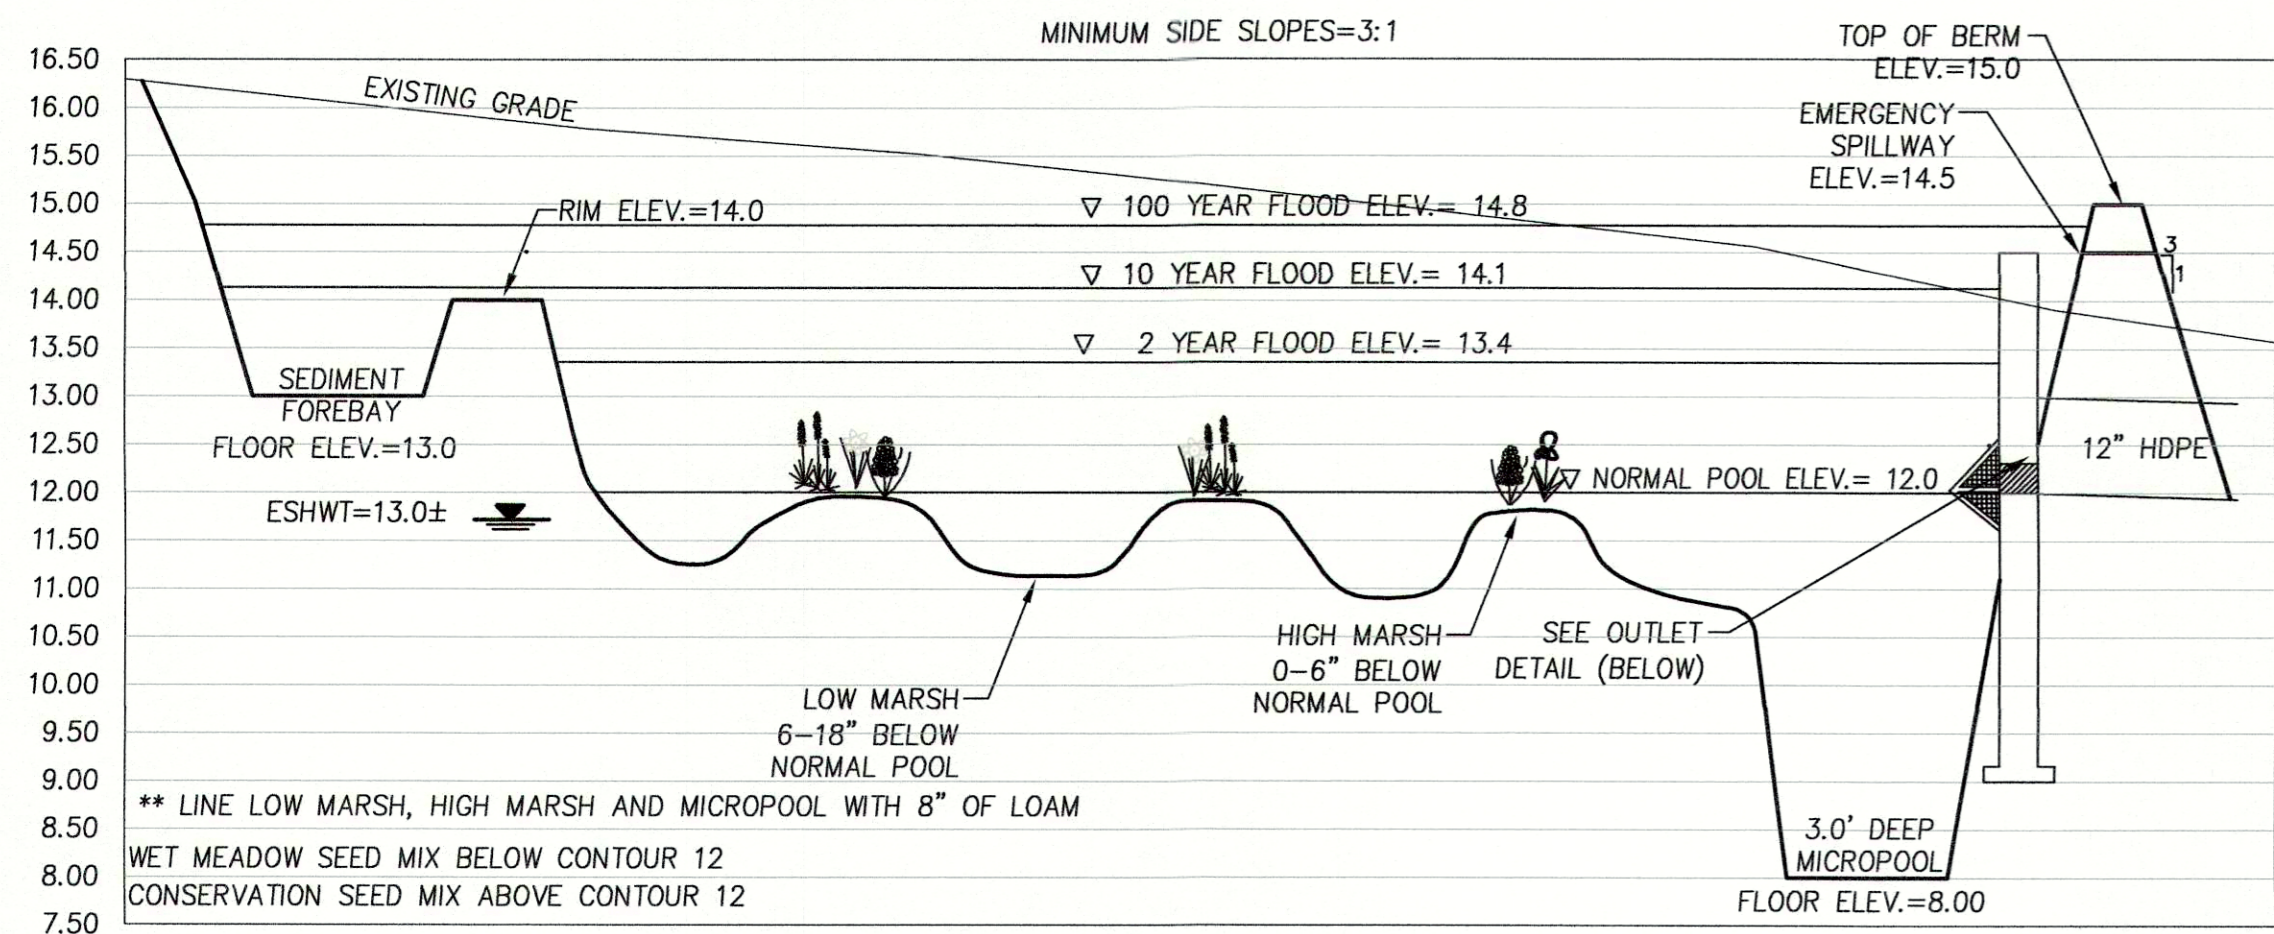 MINIMUM SIDE SLOPES=3:1
TOP OF BERM
ELEV.=15.0
EMERGENCY
SPILLWAY
ELEV.=14.5
16.50
16.00
15.50
15.00
14.50
14.00
13.50
13.00
12.50
12.00
11.50
11.00
10.50
10.00
9.50
9.00
8.50
8.00
7.50
EXISTING GRADE
RIM ELEV.=14.0
100 YEAR FLOOD ELEV.= 14.8
10 YEAR FLOOD ELEV.= 14.1
2 YEAR FLOOD ELEV.= 13.4
3
1
SEDIMENT
FOREBAY
FLOOR ELEV.=13.0
ESHWT=13.0±
NORMAL POOL ELEV.= 12.0
12" HDPE
LOW MARSH
6-18" BELOW
NORMAL POOL
HIGH MARSH
0-6" BELOW
NORMAL POOL
SEE OUTLET
DETAIL (BELOW)
** LINE LOW MARSH, HIGH MARSH AND MICROPOOL WITH 8" OF LOAM
WET MEADOW SEED MIX BELOW CONTOUR 12
CONSERVATION SEED MIX ABOVE CONTOUR 12
3.0' DEEP
MICROPOOL
FLOOR ELEV.=8.00